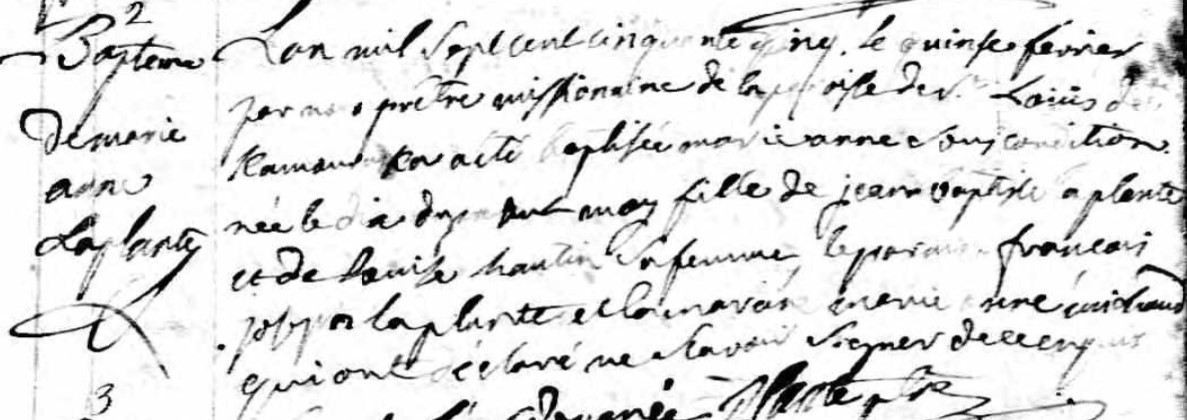 2
Bapteme
de marie
anne
Laplante
Lan mil Sept cent cinquante cinq. le quinse fevrier
par nous prêtre missionaire de la paroisse de St. Louis de
Kamouraska a été baptisée marie anne sous condition
née le dix du present moy fille de jean baptiste laplante
et de Louise hautin Sa femme, le parain francois
joseph laplante et la maraine marie anne michaud
qui ont déclaré ne scavoir signer de ce enquis
3